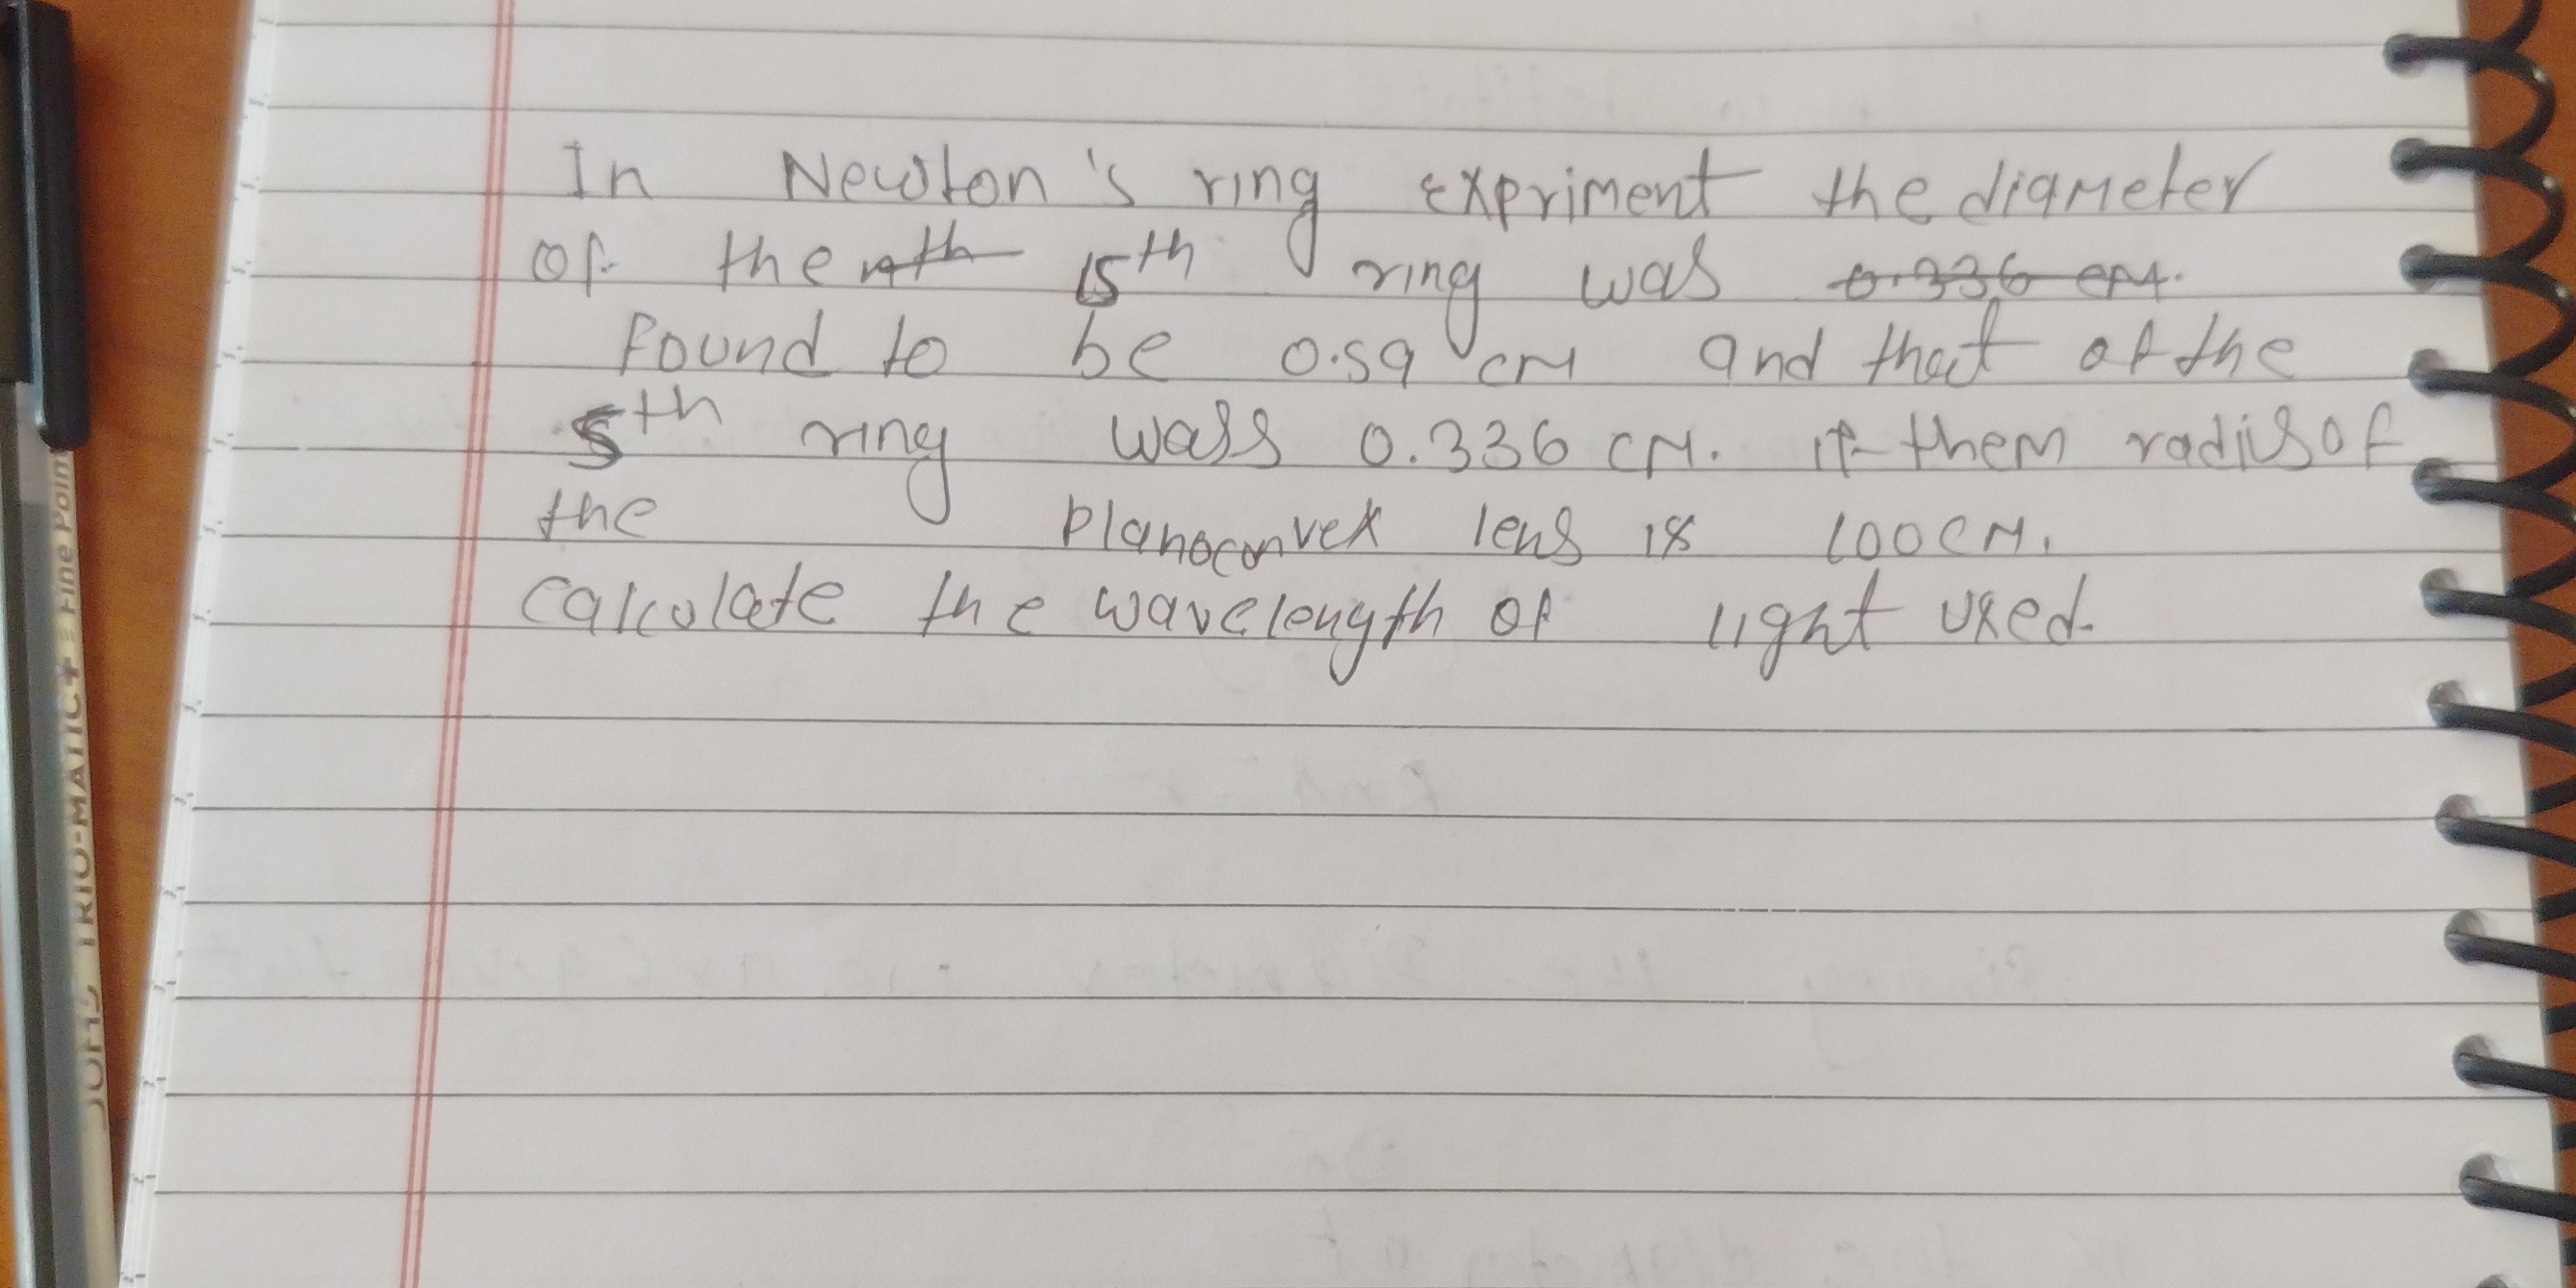 In Newton's ring expriment the diameter
of the nth 15th ring was 0.336 cm.
found to be 0.59 cm and that of the
5th ring wass 0.336 cm. if them radius of
the planoconvex lens is 100 cm.
calculate the wavelength of light used.
TRIO-MATIC+ Fine Point